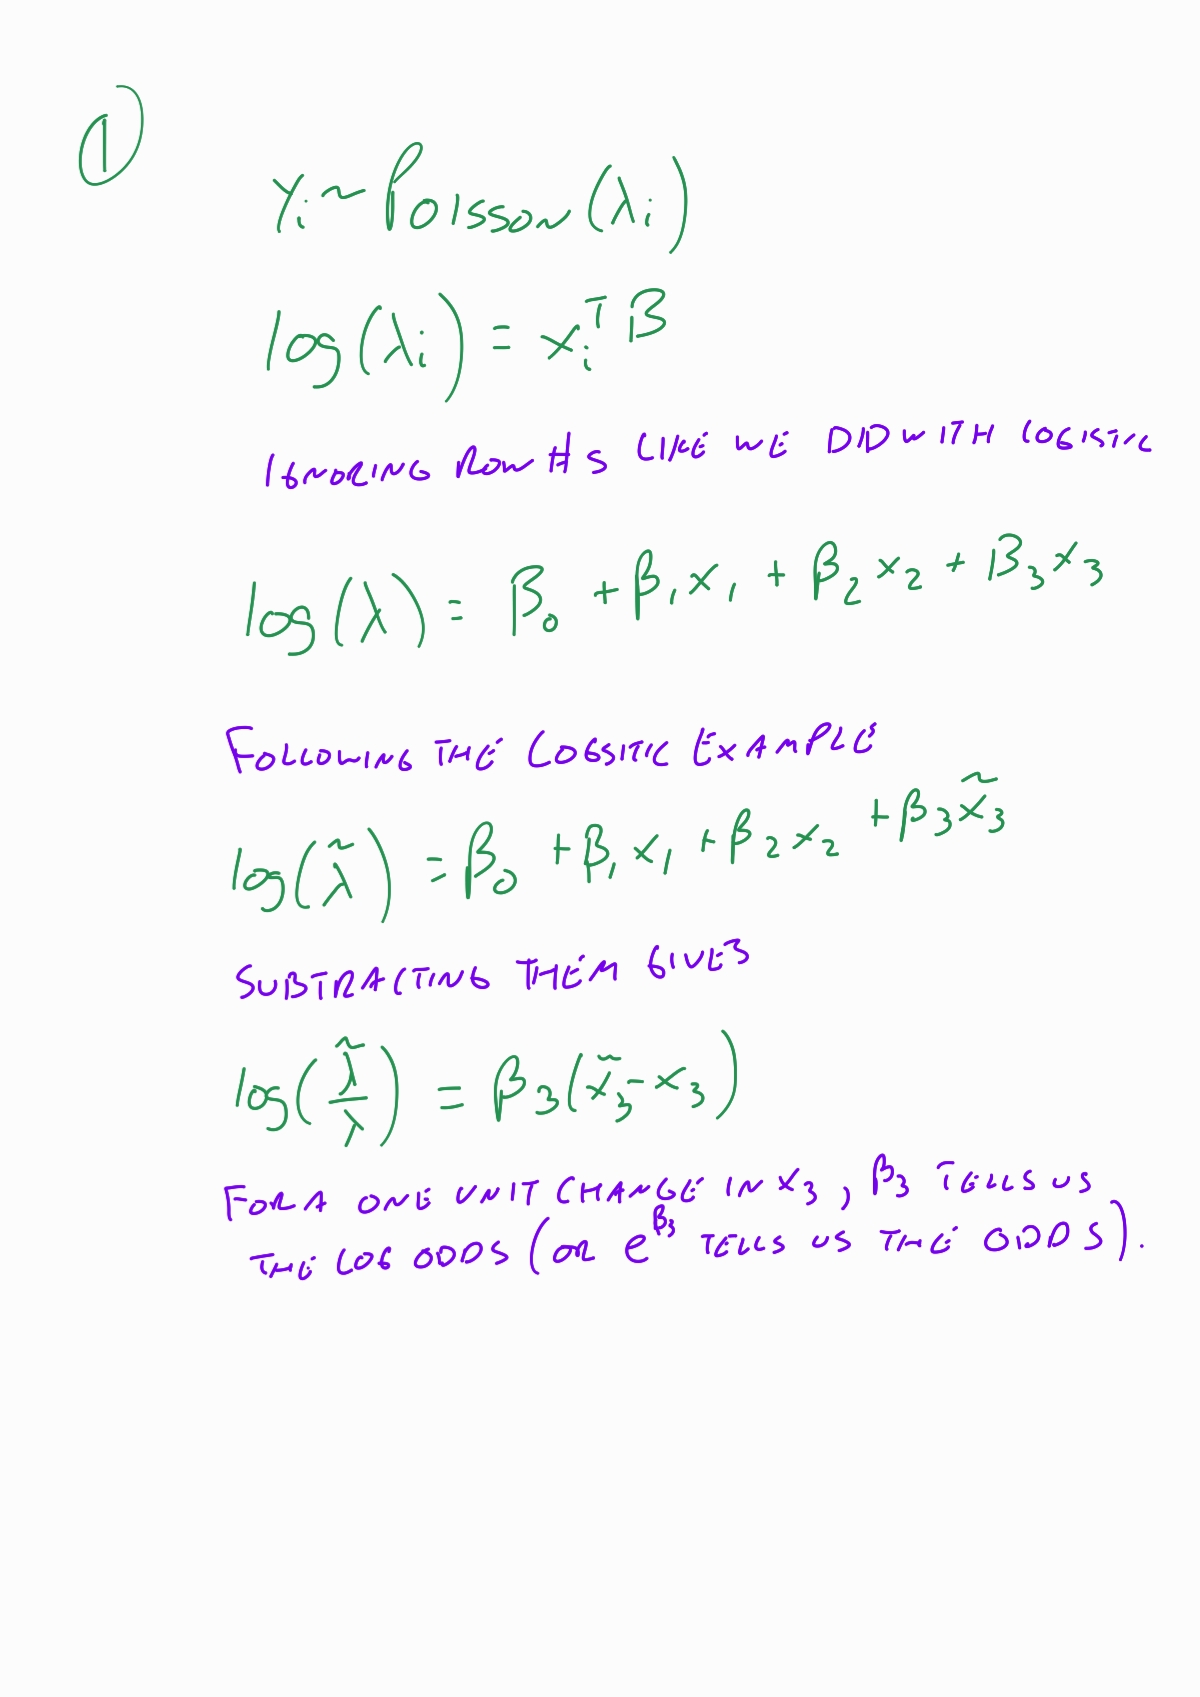 ①
Yᵢ ~ Poisson(λᵢ)
log(λᵢ) = xᵢᵀ β
IGNORING ROW #S LIKE WE DID WITH LOGISTIC
log(λ) = β₀ + β₁x₁ + β₂x₂ + β₃x₃
FOLLOWING THE LOGSITIC EXAMPLE
log(λ̃) = β₀ + β₁x₁ + β₂x₂ + β₃x̃₃
SUBTRACTING THEM GIVES
log(λ̃/λ) = β₃(x̃₃ - x₃)
FOR A ONE UNIT CHANGE IN X₃, β₃ TELLS US
THE LOG ODDS (OR e^β₃ TELLS US THE ODDS).